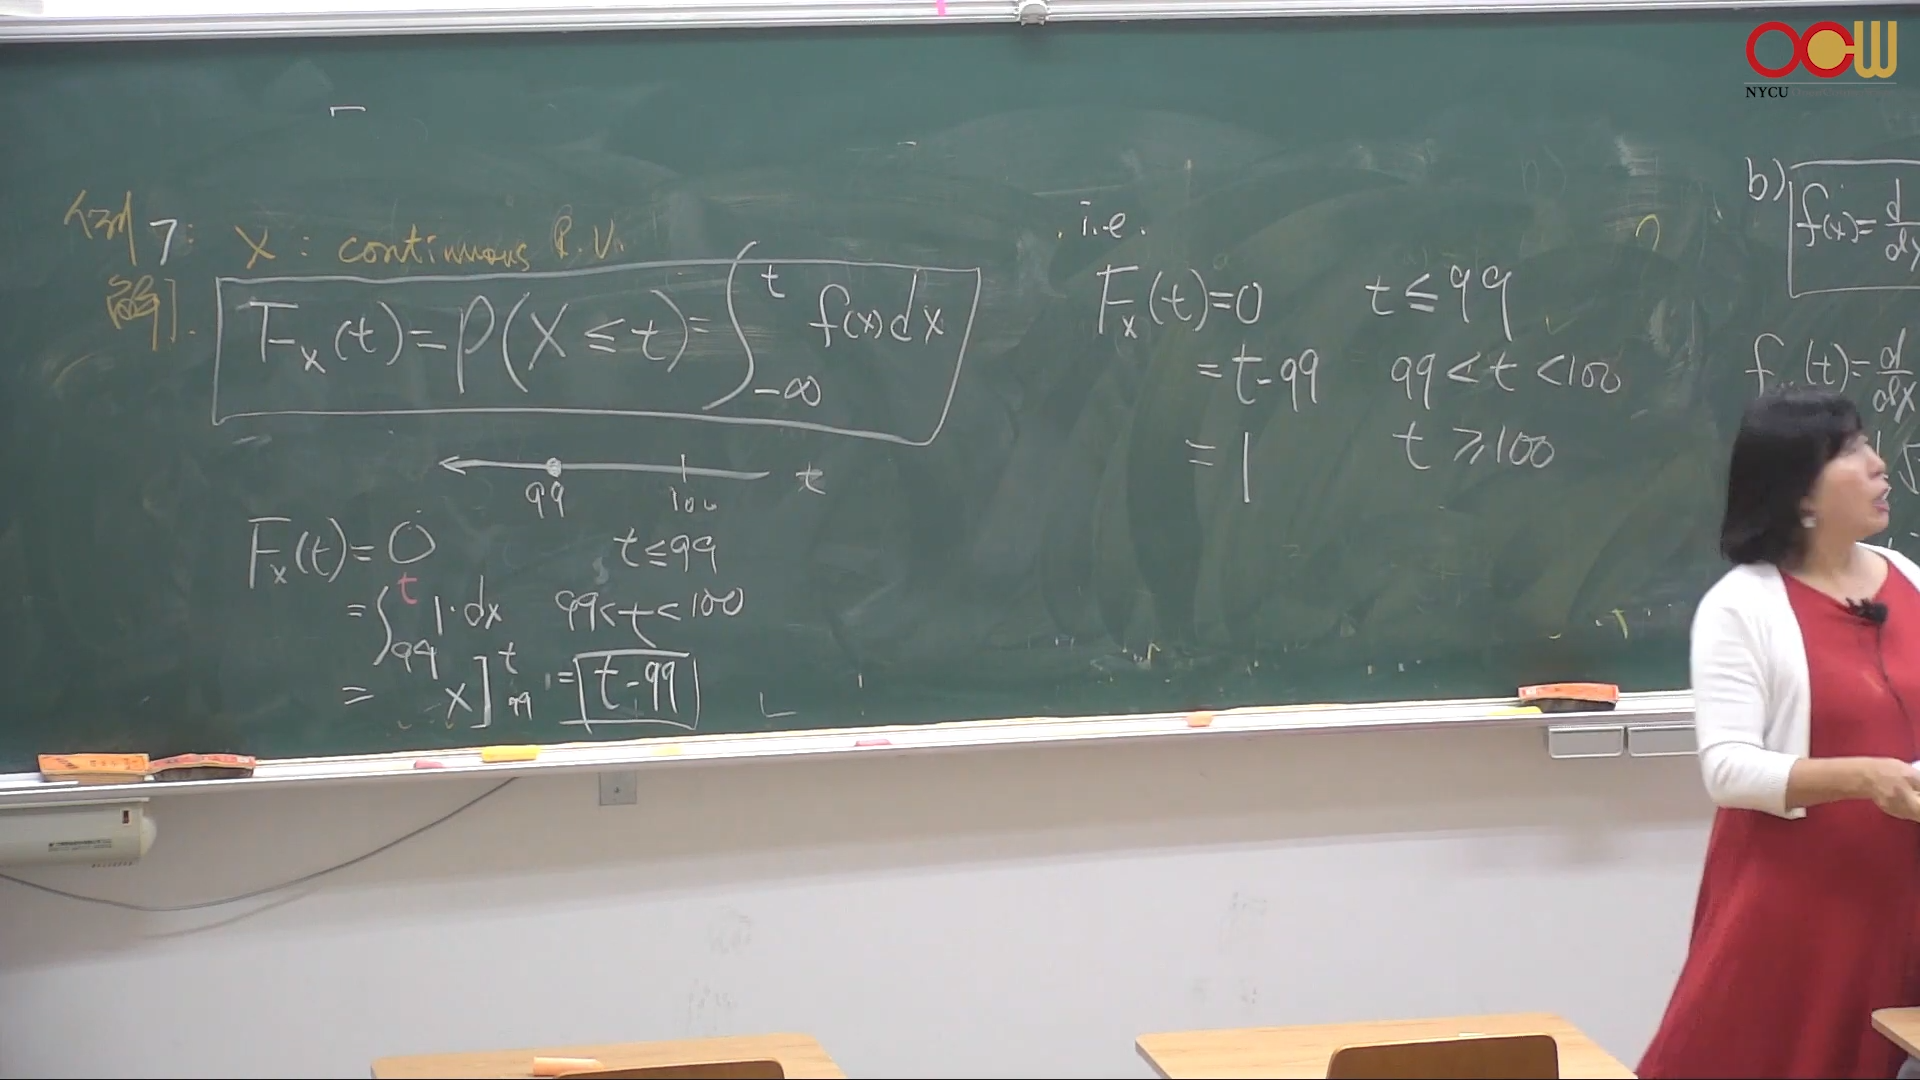 OCW
NYCU
例7: X : continuous R.V.
解].
F_X(t) = P(X ≤ t) = ∫_{-∞}^{t} f(x) dx
99 100 t
F_X(t) = 0 t ≤ 99
= ∫_{99}^{t} 1·dx 99 < t < 100
= x]_{99}^{t} = t-99
i.e.
F_X(t) = 0 t ≤ 99
= t-99 99 < t < 100
= 1 t ≥ 100
b) f(x) = d/dx
f (t) = d/dx